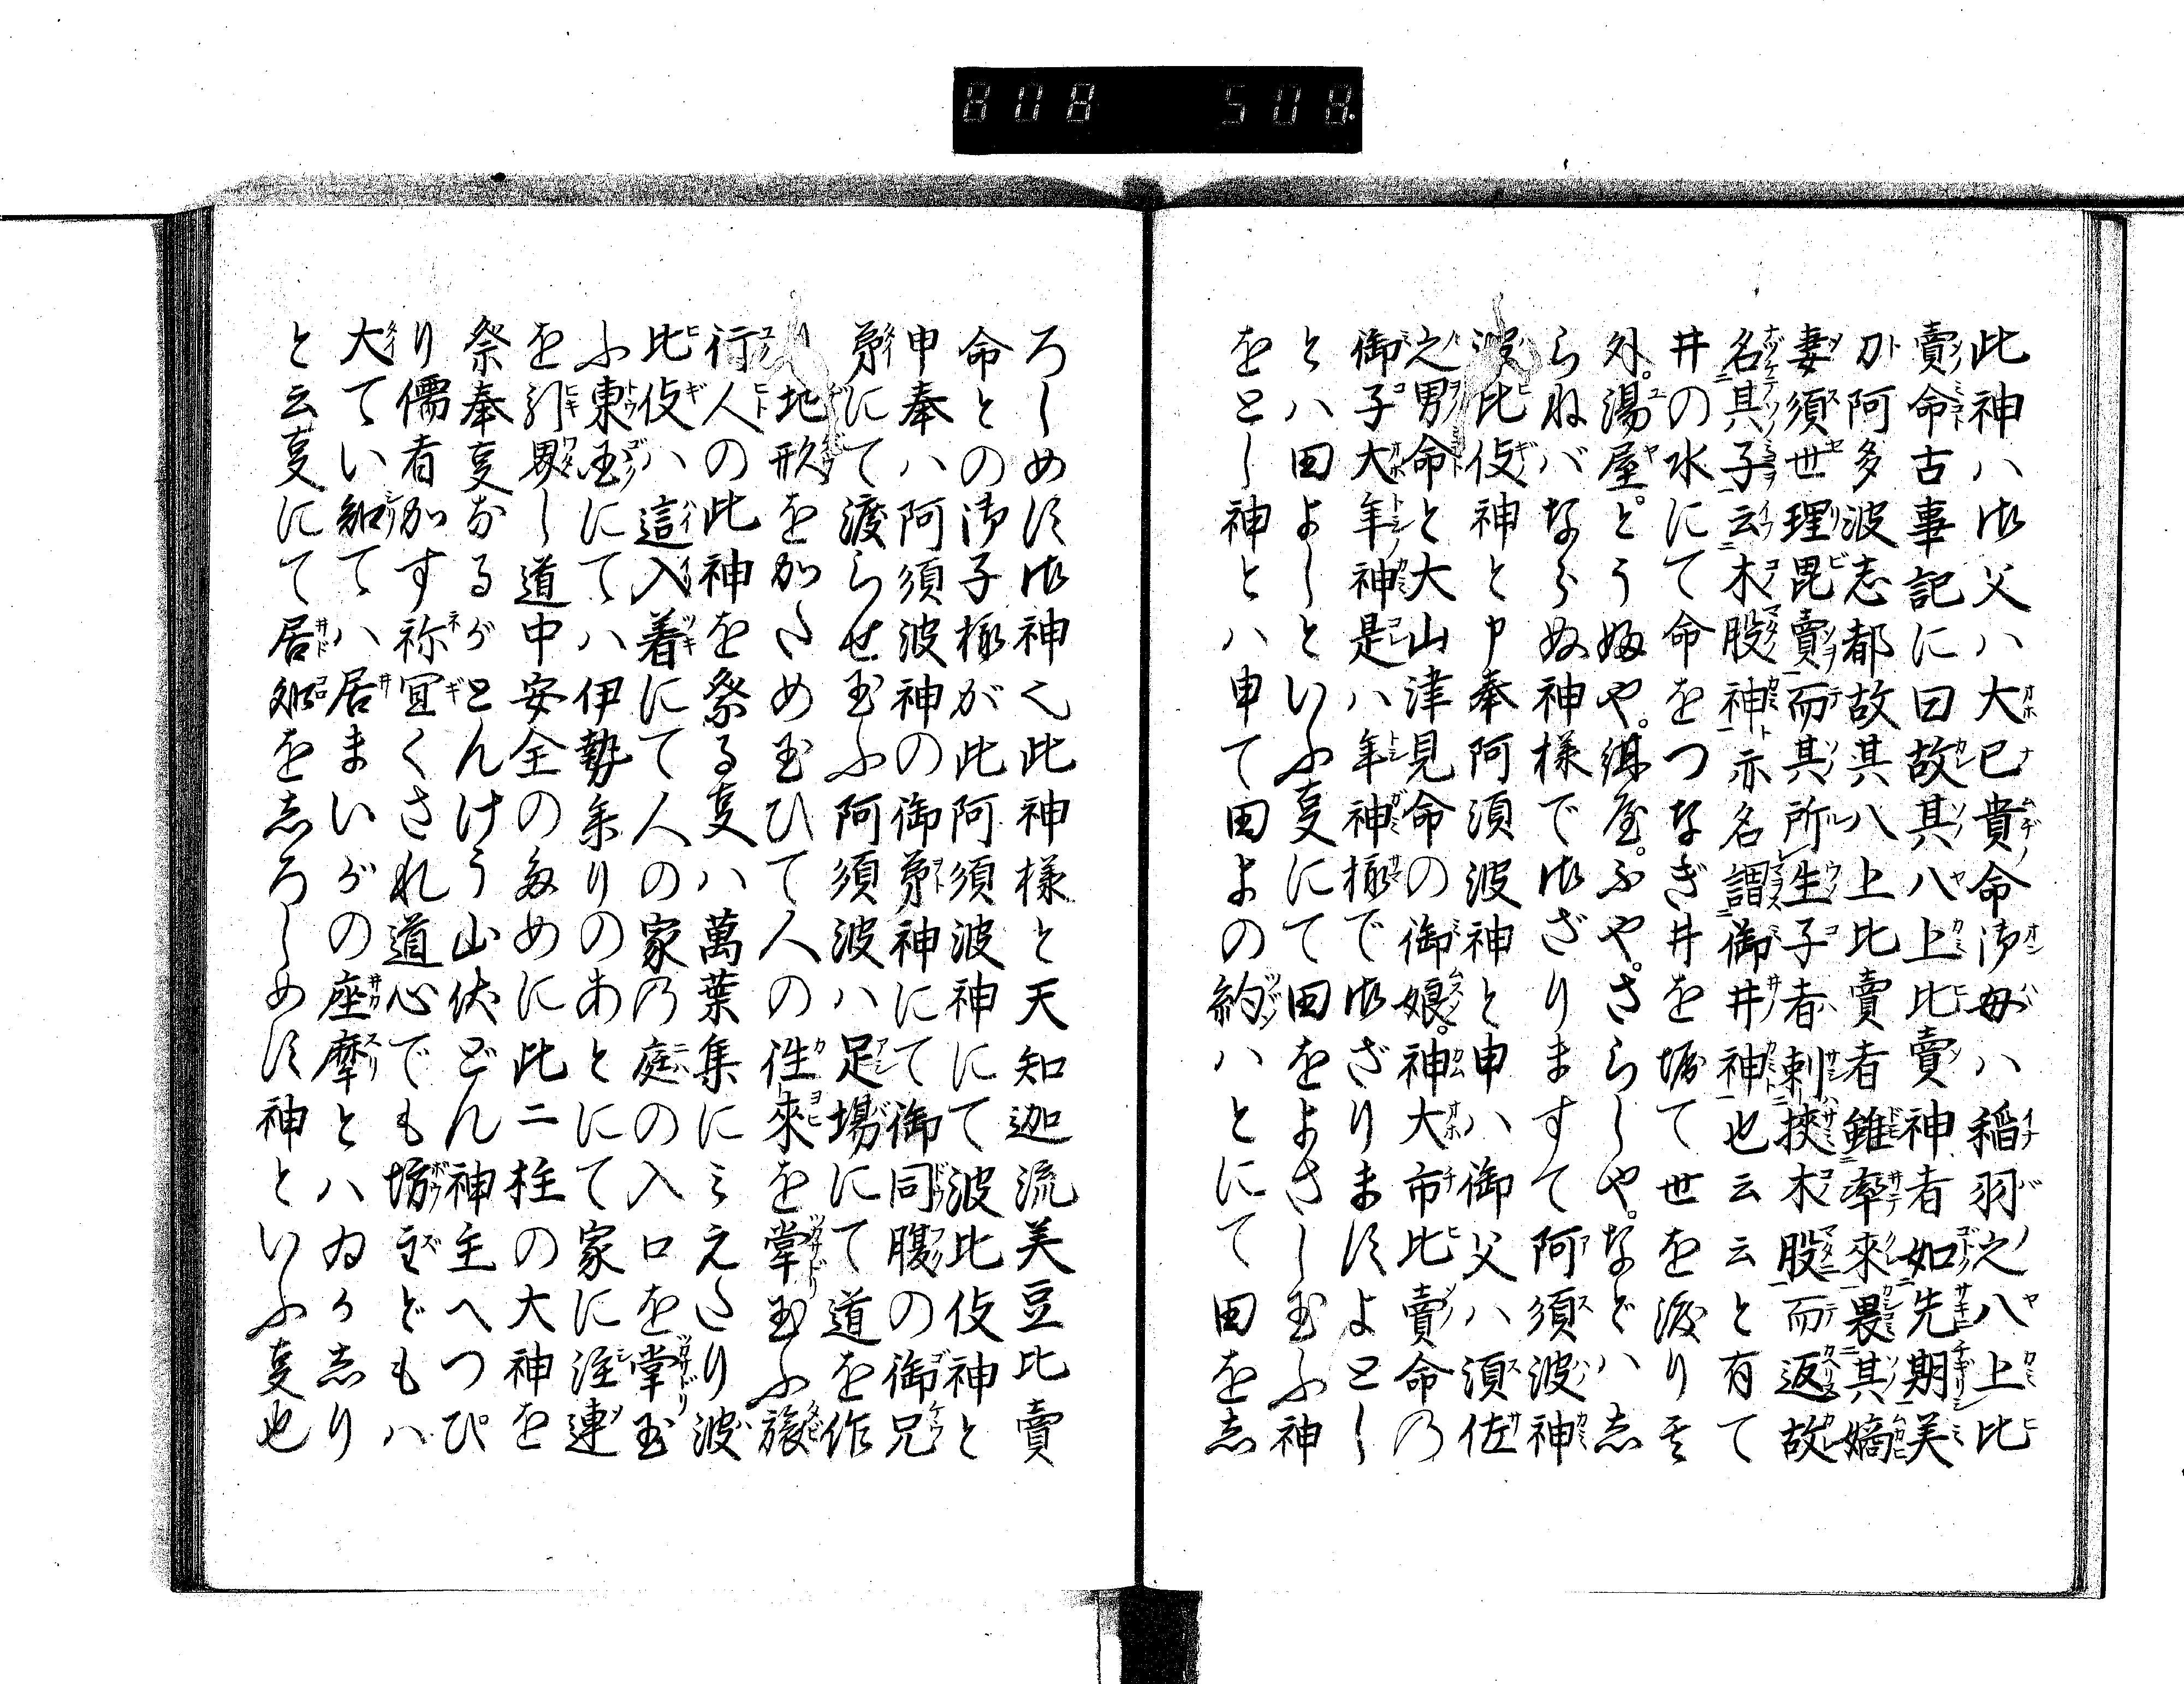 此神ハ御父ハ大已貴命御母ハ稲羽之八上比
賣命古事記に曰故其八上比賣神者如先期美
刀阿多波志都故其八上比賣者雖率來畏其嫡
妻須世理毘賣而其所生子者刺挾木股而返故
名其子云木股神亦名謂御井神也云云と有て
井の水にて命をつなぎ井を堀て世を渡り
外湯屋とうぬや練屋ふやさらしやなどハ志
らねバならぬ神様で御ざりますて阿須波神
波比伎神と申奉阿須波神と申ハ御父ハ須佐
之男命と大山津見命の御娘神大市比賣命乃
御子大年神是ハ年神様で御ざりまするよとし
とハ田よしといふ事にて田をよさし玉ふ神
をとし神とハ申て田よの約ハとにて田を志
ろしめす御神也此神様と天知迦流美豆比賣
命との御子様が此阿須波神にて波比伎神と
申奉ハ阿須波神の御弟神にて御同腹の御兄
弟にて渡らせ玉ふ阿須波ハ足場にて道を作
り地形をかため玉ひて人の徃來を掌玉ふ旅
行人の此神を祭る事ハ萬葉集にみえたり波
比伎ハ這入着にて人の家乃庭の入口を掌玉
ふ東国にてハ伊勢参りのあとにて家に注連
を引界し道中安全の為めに此二柱の大神を
祭奉事なるがとんけう山伏どん神主へつぴ
り儒者かす祢宜くされ道心でも坊主どもハ
大てい知てハ居まいがの座摩とハゐかしり
と云事にて居処をしろしめす神といふ事也
808 508